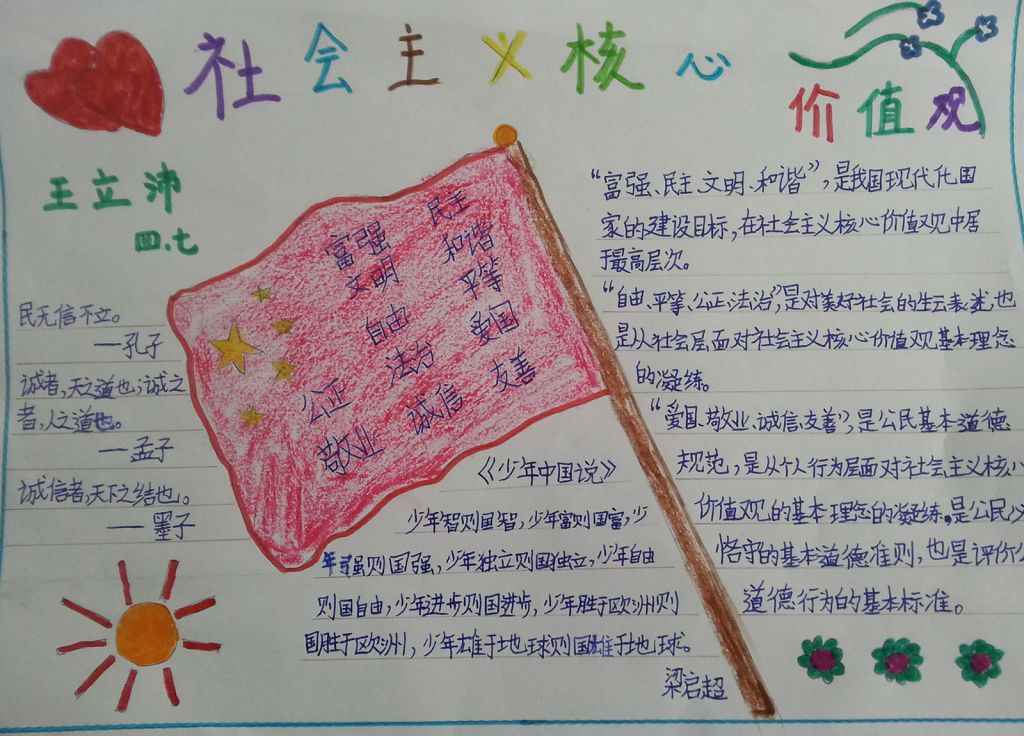 社会主义核心
价值观
王立沛
四.七
民无信不立。
——孔子
诚者,天之道也;诚之
者,人之道也。
——孟子
诚信者,天下之结也。
——墨子
富强 民主
文明 和谐
自由 平等
公正 法治 爱国
敬业 诚信 友善
《少年中国说》
少年智则国智,少年富则国富,少
年强则国强,少年独立则国独立,少年自由
则国自由,少年进步则国进步,少年胜于欧洲则
国胜于欧洲,少年雄于地球则国雄于地球。
梁启超
“富强、民主、文明、和谐”,是我国现代化国
家的建设目标,在社会主义核心价值观中居
于最高层次。
“自由、平等、公正、法治”,是对美好社会的生云表述,也
是从社会层面对社会主义核心价值观基本理念
的凝练。
“爱国、敬业、诚信、友善”,是公民基本道德
规范,是从个人行为层面对社会主义核心
价值观的基本理念的凝练。是公民必
恪守的基本道德准则,也是评价公
道德行为的基本标准。